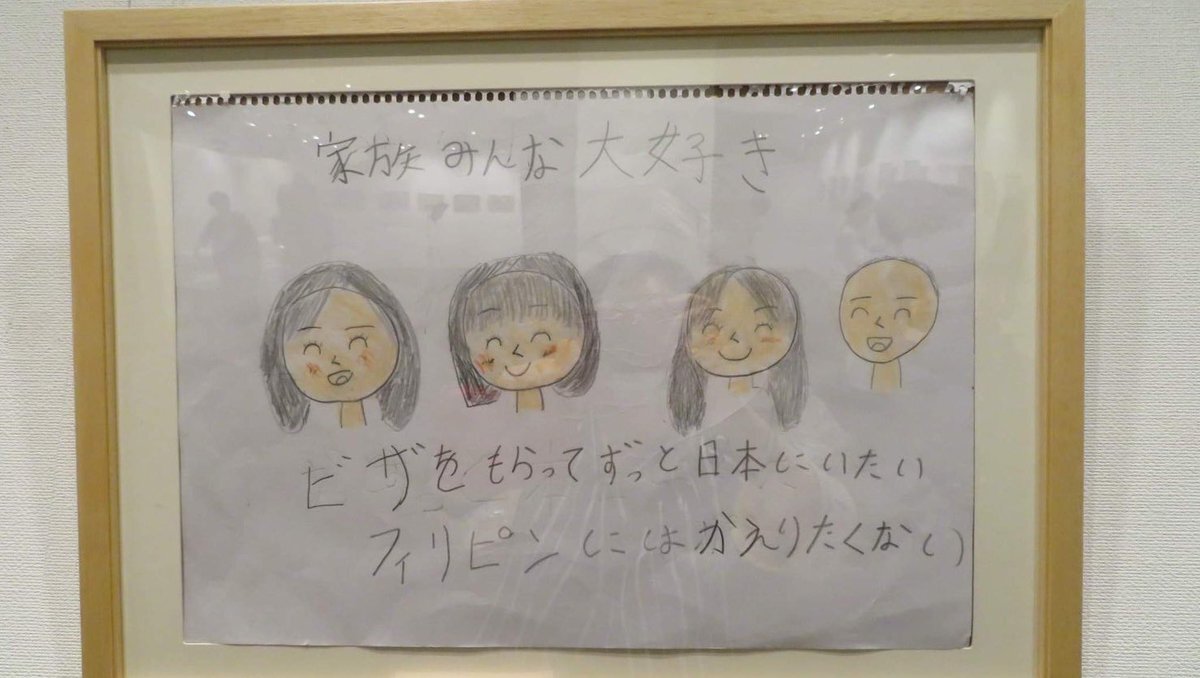 家族みんな大好き
ビザをもらってずっと日本にいたい
フィリピンにはかえりたくない